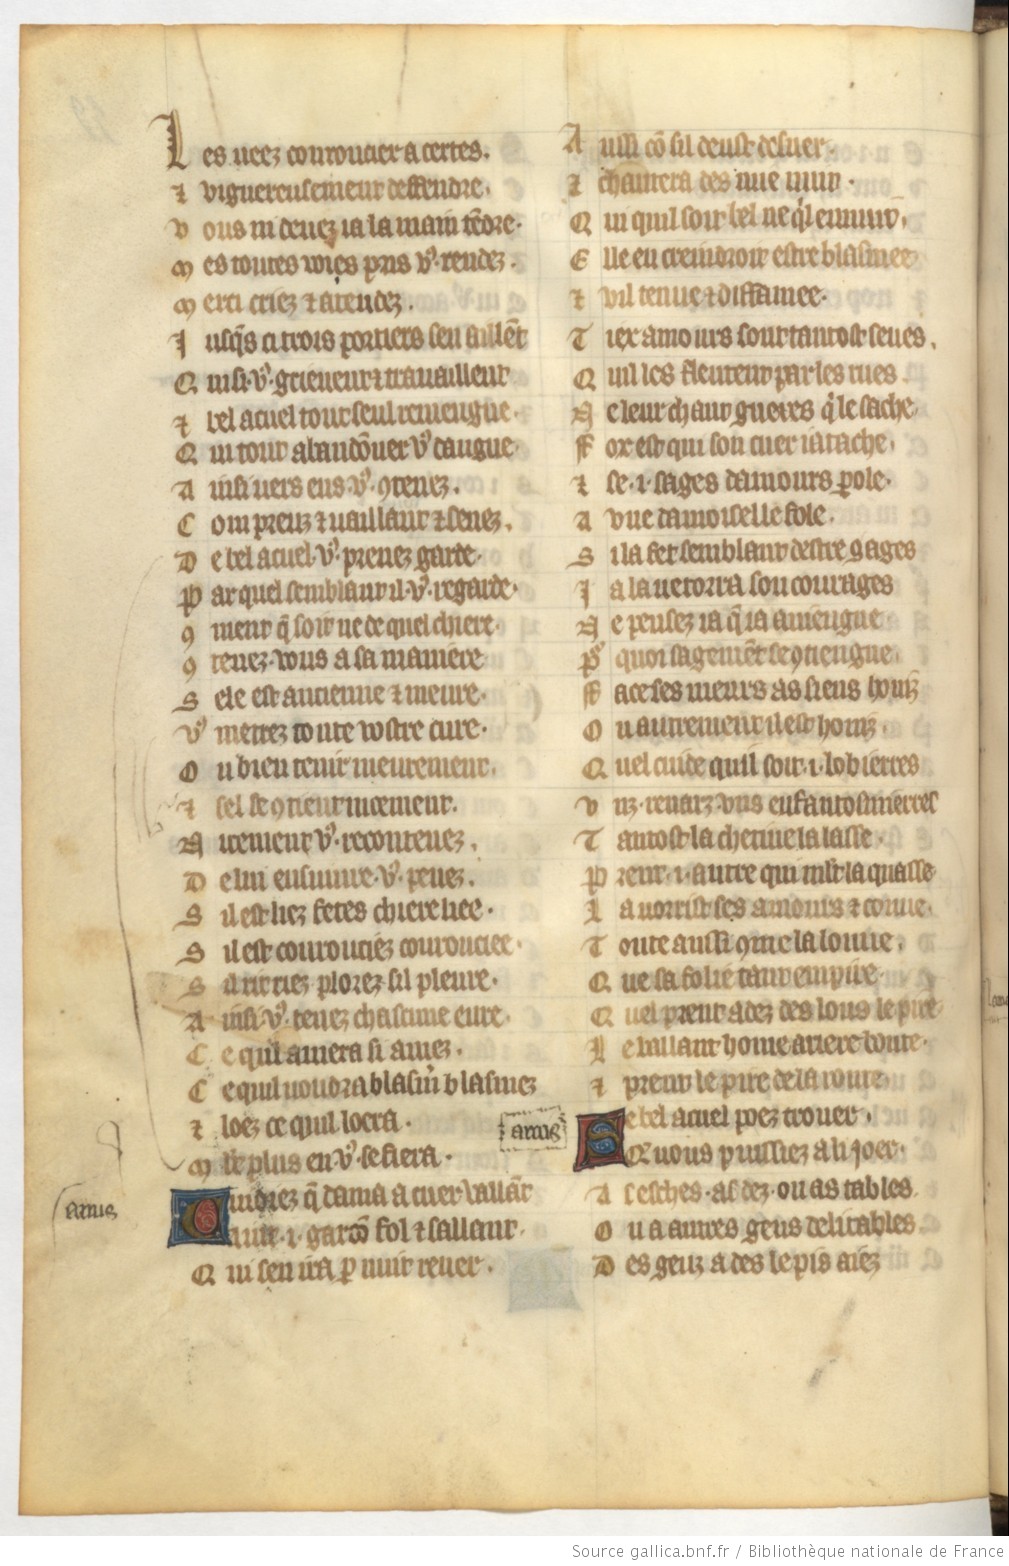 Les veez courroucier acertes.
⁊ viguereusement deffendre.
Vous ni devez ia la main tẽdre.
Mes toutes voies pris vꝰ rendez.
Merci criez ⁊ atendez.
Iusq̃s ci trois portiers sen aillẽt
Qui si vꝰ grieuent ⁊ travaillent
⁊ bel acuel tout seul remengne.
Qui tout abandõner vꝰ daigne.
Ainsi vers eus vꝰ ꝯtenez.
Com preuz ⁊ vaillant ⁊ senez.
De bel acuel vꝰ prenez garde.
Par quel semblant il vꝰ regarde.
ꝯment q̃ soit ne de quel chiere.
ꝯtenez vous a sa maniere
Sele est ancienne ⁊ meure.
Vꝰ metrez toute vostre cure.
Ou bien tenir meurement.
⁊ sel se ꝯtient nicement.
Nicement vꝰ recontenez.
De lui ensuivre vꝰ penez.
Sil est liez fetes chiere liee.
Sil est courouciez courouciee.
Sil rit riez plorez sil pleure.
Ainsi vꝰ tenez chascune eure.
Ce quil amera si amez.
Ce quil voudra blasm̃ blasmez
⁊ loez ce quil loera.
M lt plus en vꝰ se fiera.
Cuidiez q̃ dame a cuer vaillãt
Aint .i. garcõ fol ⁊ saillant.
Qui sen ira p nuit resver.
Aussi cõ sil deust desver.
⁊ chantera des mie nuit.
Qui quil soit bel ne q̃l ennuit.
Elle en creindroit estre blasmee
⁊ vil tenue ⁊ diffamee.
Tiex amours sont tantost seues.
Quil les fleutent par les rues.
Ne leur chaut gueres q̃ le sache
Fox est qui son cuer i atache.
⁊ se .i. sages damours pole.
A une damoiselle fole.
Sil a fet semblant destre sages
Ia la ne torra son courages
Ne pensez ia q̃ ia aviengne
Pꝰ quoi sagemẽt se ꝯtiengne.
Face ses meurs as siens honiz
Ou autrement il est honiz.
Quel cuide quil soit .i. lobierres
Uns renarz uns enfantosmerres
Tantost la chetive la lasse.
Prent .i. autre qui mlt la quasse
La norrist ses amours ⁊ conve.
Toute aussi ꝯme la louve.
Que sa folie tant empire.
Quel prent adez des lous le pire
Le vaillant home arriere boute.
⁊ prent le pire de la route.
Se bel acuel poez trouer.
Que vous puissiez a li joer.
As esches. as dez. ou as tables.
Ou a autres geus delitables.
Des geuz a des le pis aiez
amis
amis
Source gallica.bnf.fr / Bibliothèque nationale de France